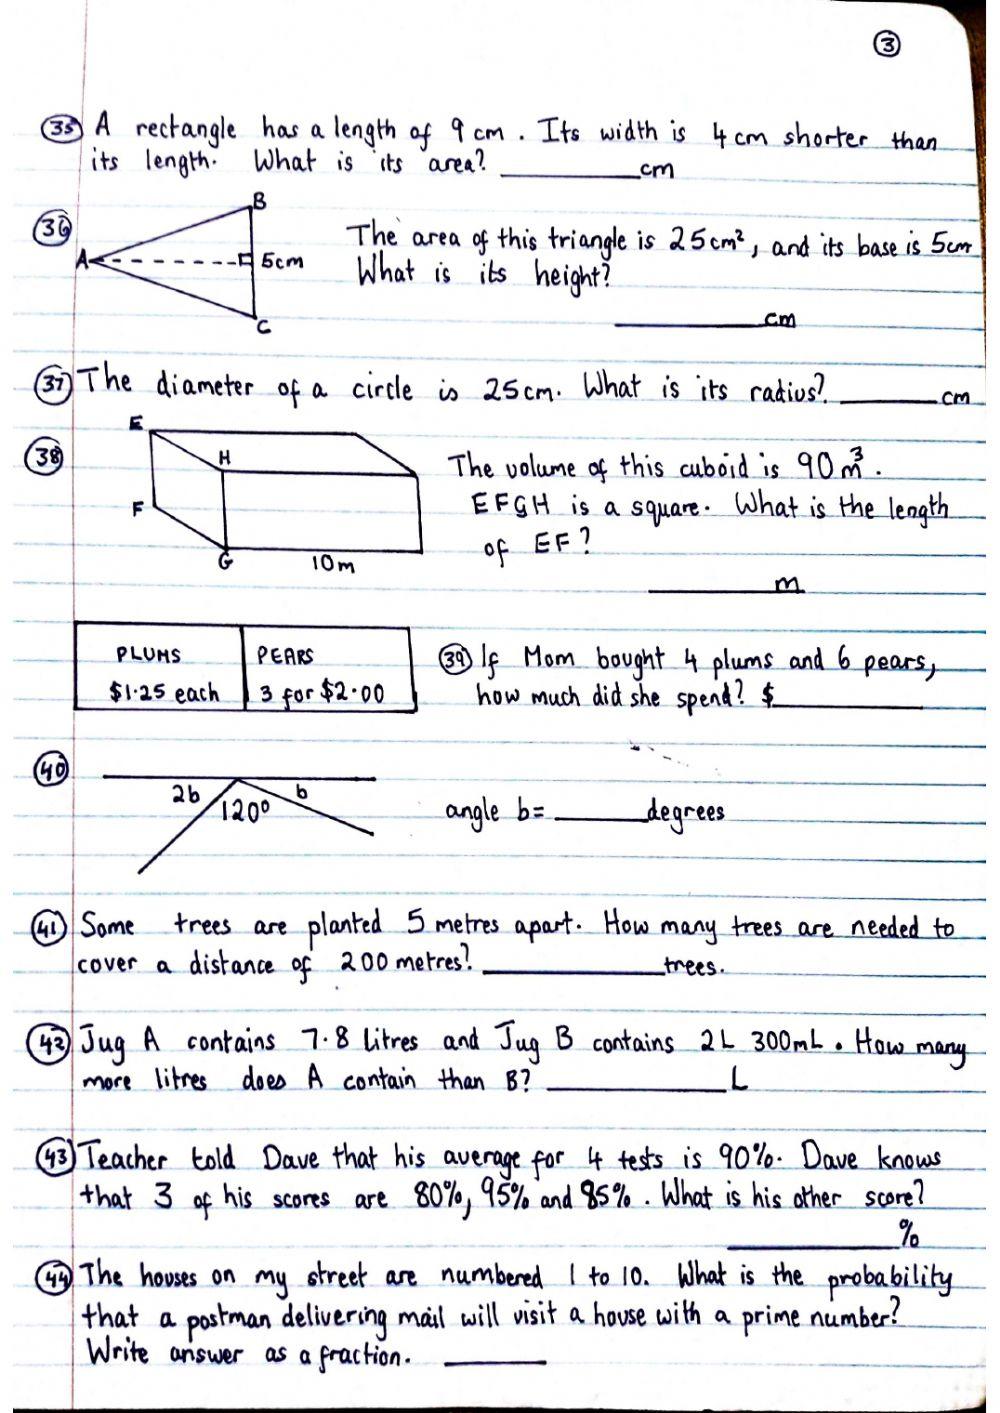 3
35 A rectangle has a length of 9 cm. Its width is 4 cm shorter than
its length. What is its area? ________ cm
36 The area of this triangle is 25cm², and its base is 5cm
What is its height?
________ cm
A
B
5cm
C
37 The diameter of a circle is 25cm. What is its radius? ________ cm
38 The volume of this cuboid is 90m³.
EFGH is a square. What is the length
of EF?
________ m
E
H
F
G
10m
PLUMS
$1.25 each
PEARS
3 for $2.00
39 If Mom bought 4 plums and 6 pears,
how much did she spend? $________
40
2b
120°
b
angle b= ________ degrees
41 Some trees are planted 5 metres apart. How many trees are needed to
cover a distance of 200 metres? ________ trees.
42 Jug A contains 7.8 litres and Jug B contains 2L 300mL. How many
more litres does A contain than B? ________ L
43 Teacher told Dave that his average for 4 tests is 90%. Dave knows
that 3 of his scores are 80%, 95% and 85%. What is his other score?
________ %
44 The houses on my street are numbered 1 to 10. What is the probability
that a postman delivering mail will visit a house with a prime number?
Write answer as a fraction. ________